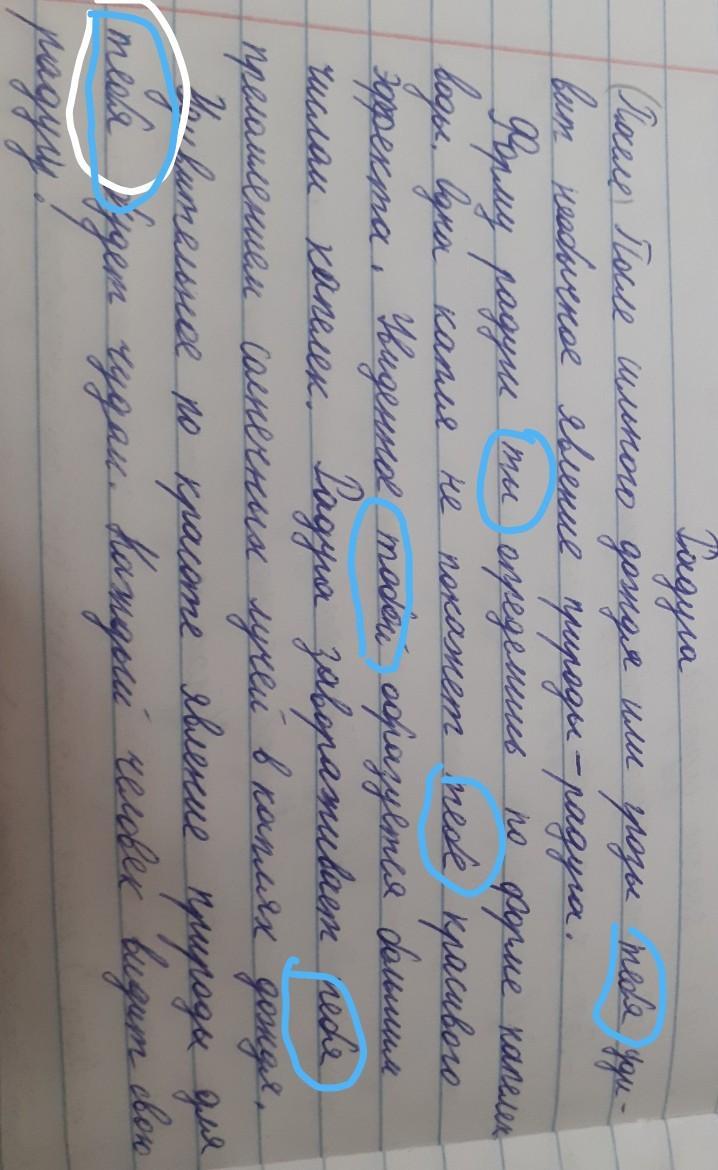 Радуга
(После) После сильного дождя или грозы тебя уди-
вит необычное явление природы - радуга.
Форму радуги ты определишь по форме капелек
воды. Одна капля не покажет тебе красивого
эффекта. Увиденное тобой образуется большим
числам капелек. Радуга завораживает тебя
преломлением солнечных лучей в каплях дождя.
Удивительное по красоте явление природы для
тебя будет чудом. Каждый человек видит свою
радугу.